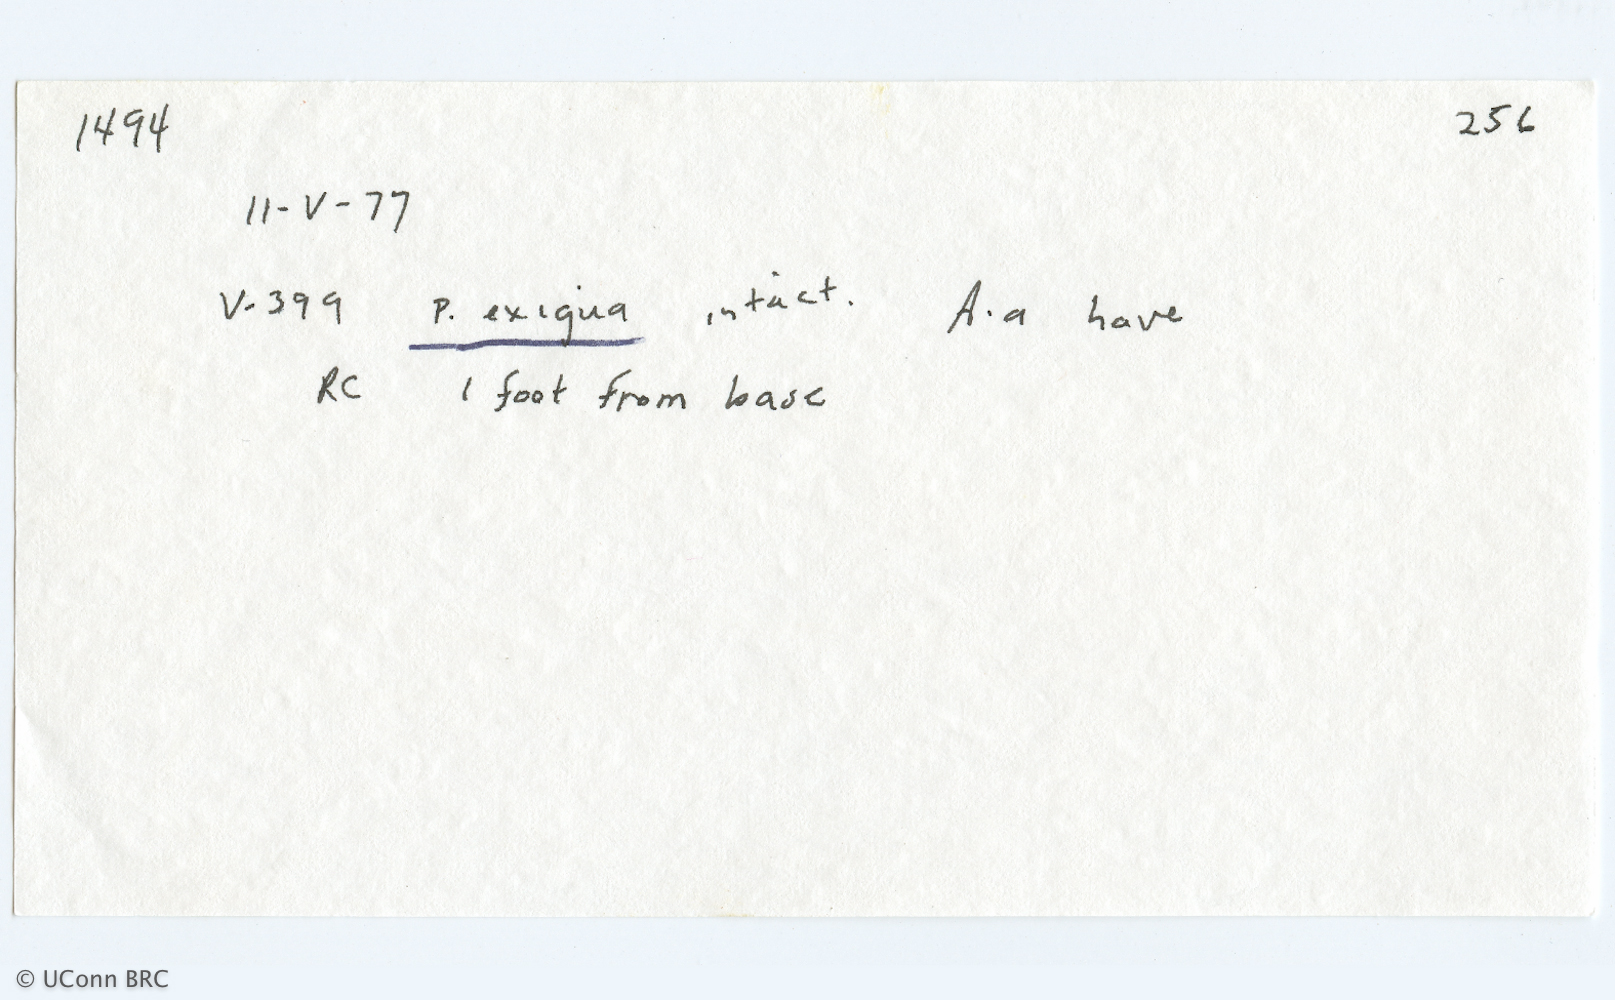 1494 256
11-V-77
V-399 P. exigua intact. A.a have
RC 1 foot from base
© UConn BRC